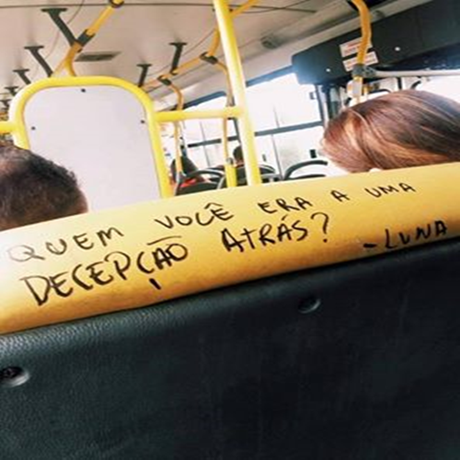 QUEM VOCÊ ERA A UMA
DECEPÇÃO ATRÁS?
-LUNA